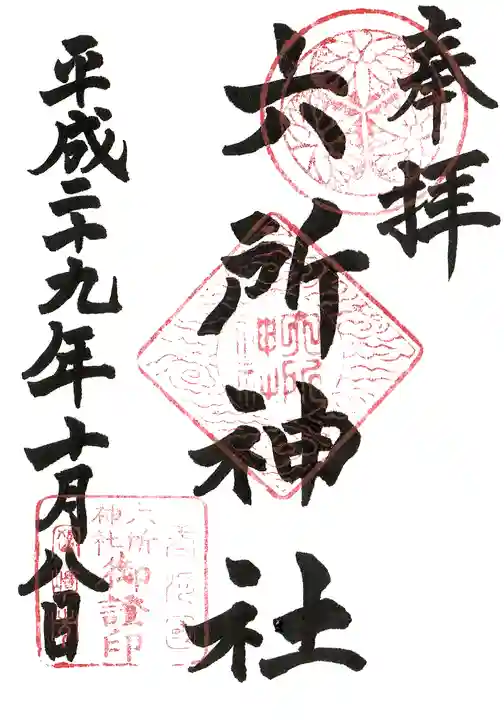 奉拝
六所神社
平成二十九年十月八日
六所
神社
御證印